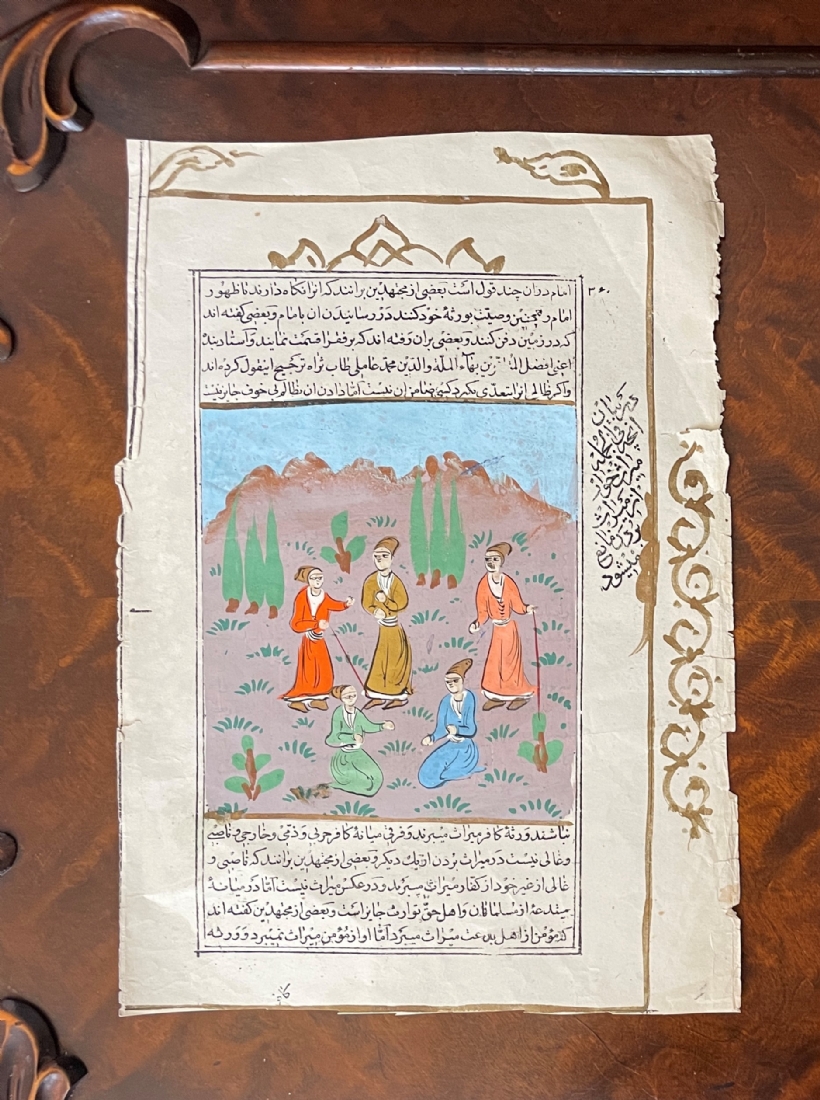 امام دران چند قول است بعضی از مجتهدین برانند که انرا نگاه دارند تا ظهور
امام و همچنین وصیت بورثهٔ خود کنند در رسانیدن ان بامام و بعضی گفته اند
که در زمین دفن کنند و بعضی بران رفته اند که بر فقرا قسمت نمایند و استاد بنده
اعنی افضل المتاخرین بهاء الملة والدین محمد عاملی طاب ثراه ترجیح اینقول کرده اند
و اگر ظالم انرا بتعدی بگیرد کسی ضامن ان نیست اما دادن ان بظالم بی خوف جایز نیست
۳۶۰
میشود
نباشند ورثهٔ کافر میراث میبرند و فرقی میانهٔ کافر حربی و ذمی و خارجی و ناصبی
و غالی نیست در میراث بردن از یک دیگر و بعضی از مجتهدین برانند که ناصبی و
غالی از غیر خود از کفار میراث میبرند و در عکس میراث نیست اما در میانهٔ
مبتدعه از مسلمانان و اهل حق توارث جایز است و بعضی از مجتهدین گفته اند
که مؤمن از اهل بدعت میراث میبرد اما او از مؤمن میراث نمیبرد و ورثه